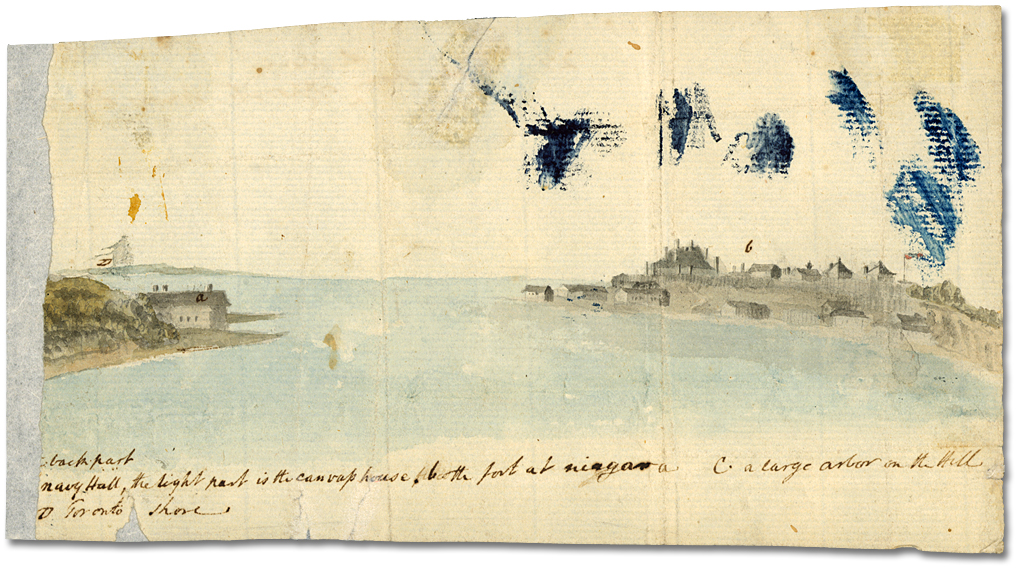 D
a
b
back part
navy Hall, the light part is the canvas house, b the fort at niagara C. a large arbor on the Hill
D Toronto Shore